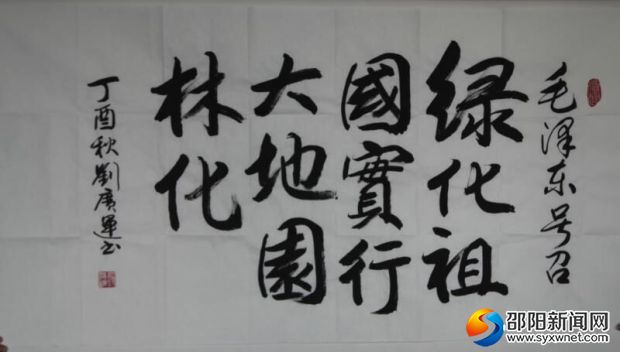 毛泽东号召
绿化祖
國實行
大地園
林化
丁酉秋劉廣運书
邵阳新闻网
www.syxwnet.com